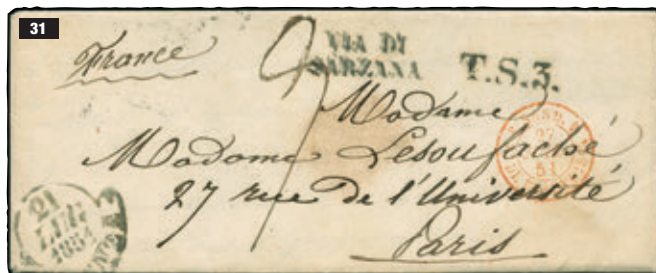 31
France
VIA DI
SARZANA
T.S.3.
Madame
Madame Lesoufaché
27 rue de l'Université
Paris
21
LUG
1851